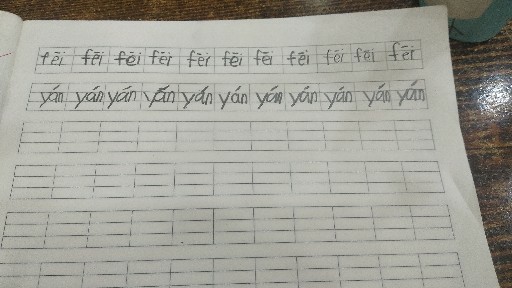 fēi fēi fēi fēi fēi fēi fēi fēi fēi fēi fēi
yán yán yán yán yán yán yán yán yán yán yán